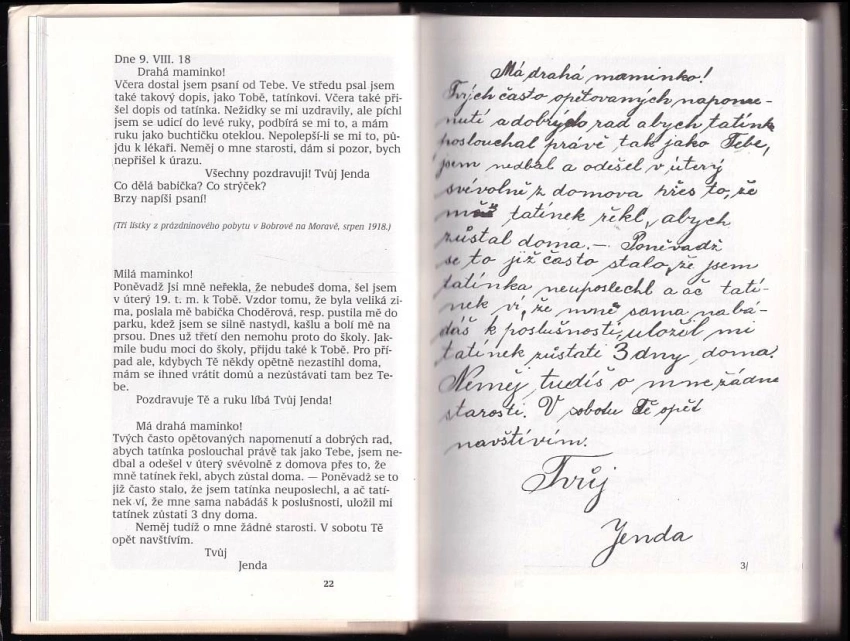 Dne 9. VIII. 18
Drahá maminko!
Včera dostal jsem psaní od Tebe. Ve středu psal jsem
také takový dopis, jako Tobě, tatínkovi. Včera také při-
šel dopis od tatínka. Nežidky se mi uzdravily, ale píchl
jsem se udicí do levé ruky, podbírá se mi to, a mám
ruku jako buchtičku oteklou. Nepolepší-li se mi to, pů-
jdu k lékaři. Neměj o mne starosti, dám si pozor, bych
nepřišel k úrazu.
Všechny pozdravuji! Tvůj Jenda
Co dělá babička? Co strýček?
Brzy napíši psaní!
(Tři lístky z prázdninového pobytu v Bobrově na Moravě, srpen 1918.)
Milá maminko!
Poněvadž Jsi mně neřekla, že nebudeš doma, šel jsem
v úterý 19. t. m. k Tobě. Vzdor tomu, že byla veliká zi-
ma, poslala mě babička Choděrová, resp. pustila mě do
parku, kdež jsem se silně nastydl, kašlu a bolí mě na
prsou. Dnes už třetí den nemohu proto do školy. Jak-
mile budu moci do školy, přijdu také k Tobě. Pro pří-
pad ale, kdybych Tě někdy opětně nezastihl doma,
mám se ihned vrátit domů a nezůstávati tam bez Te-
be.
Pozdravuje Tě a ruku líbá Tvůj Jenda!
Má drahá maminko!
Tvých často opětovaných napomenutí a dobrých rad,
abych tatínka poslouchal právě tak jako Tebe, jsem ne-
dbal a odešel v úterý svévolně z domova přes to, že
mně tatínek řekl, abych zůstal doma. — Poněvadž se to
již často stalo, že jsem tatínka neuposlechl, a ač tatí-
nek ví, že mne sama nabádáš k poslušnosti, uložil mi
tatínek zůstati 3 dny doma.
Neměj tudíž o mne žádné starosti. V sobotu Tě
opět navštívím.
Tvůj
Jenda
22
Má drahá maminko!
Tvých často opětovaných napome-
nutí a dobrých rad abych tatínk
poslouchal právě tak jako Tebe,
jsem nedbal a odešel v úterý
svévolně z domova přes to, že
tatínek řekl, abych
zůstal doma. — Poněvadž
se to již často stalo, že jsem
tatínka neuposlechl a ač tatí-
nek ví, že mně sama nabá-
dáš k poslušnosti, uložil mi
tatínek zůstati 3 dny doma.
Neměj tudíš o mne žádne
starosti. V sobotu Tě opět
navštívím.
Tvůj
Jenda
3/